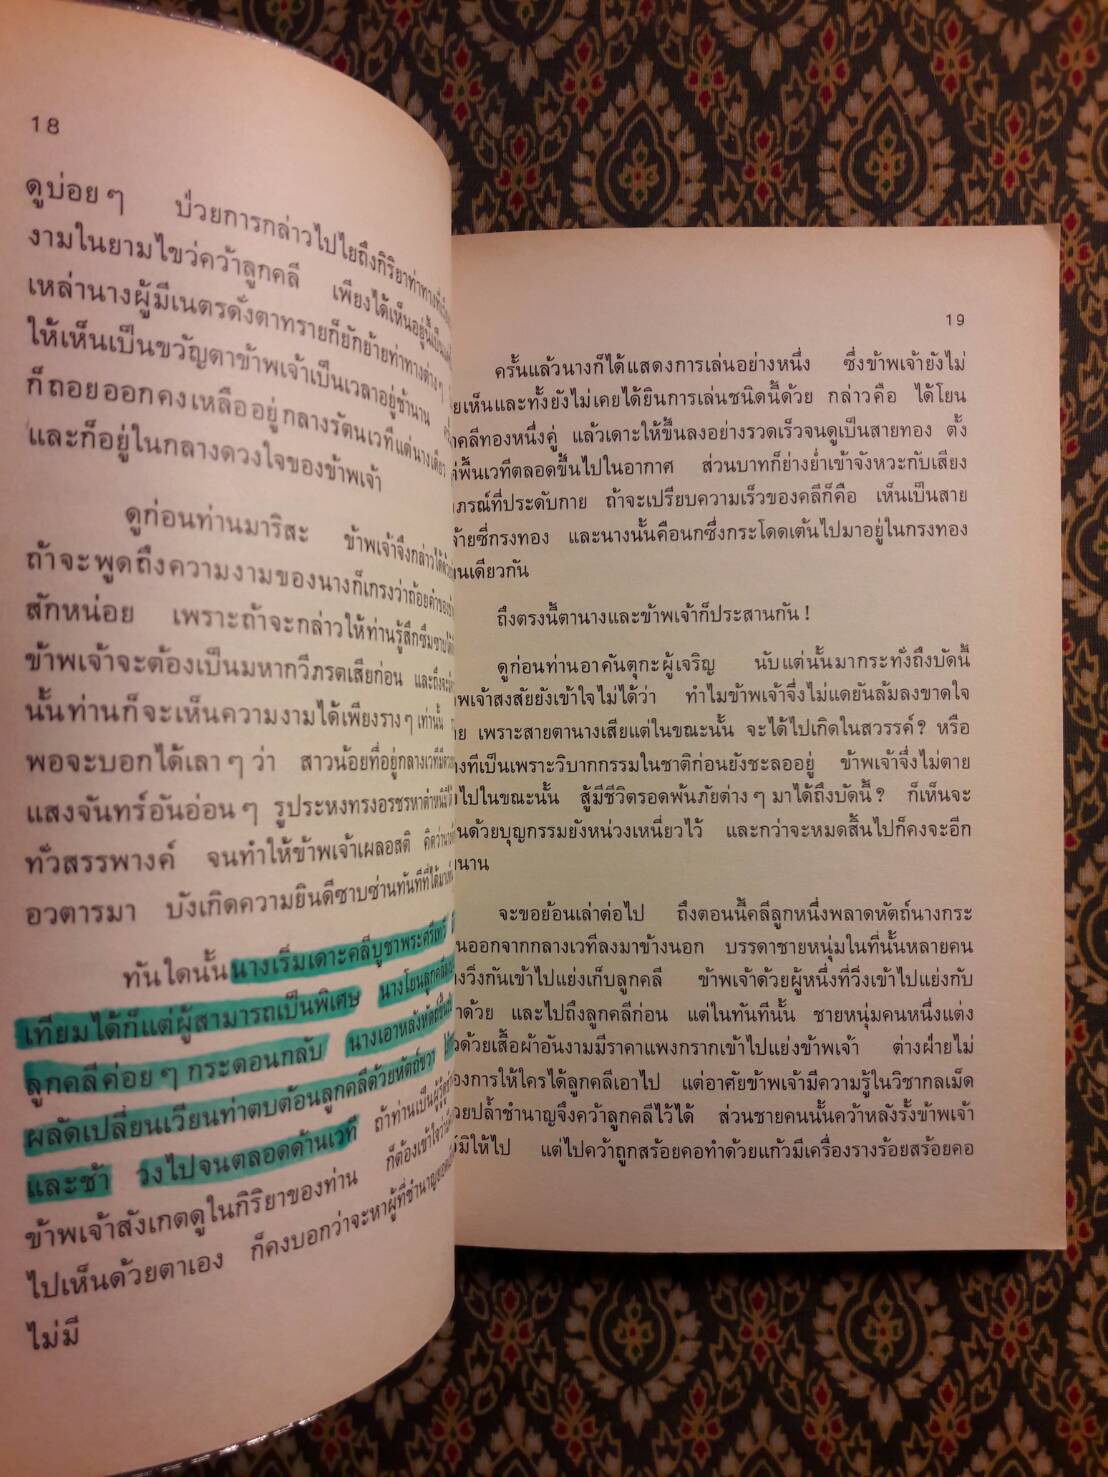 18
ดูบ่อยๆ ป่วยการกล่าวไปไยถึงกิริยาท่าทางที่
งามในยามไขว่คว้าลูกคลี เพียงได้เห็นอยู่นั้นเป็น
เหล่านางผู้มีเนตรดั่งตาทรายก็ยักย้ายท่าทางต่างๆ
ให้เห็นเป็นขวัญตาข้าพเจ้าเป็นเวลาอยู่ช้านาน
ก็ถอยออกคงเหลืออยู่กลางรัตนเวทีแต่นางเดียว
และก็อยู่ในกลางดวงใจของข้าพเจ้า
ดูก่อนท่านมาริสะ ข้าพเจ้าจึงกล่าวได้
ถ้าจะพูดถึงความงามของนางก็เกรงว่าถ้อยคำของ
สักหน่อย เพราะถ้าจะกล่าวให้ท่านรู้สึกซึมซาบได้
ข้าพเจ้าจะต้องเป็นมหากวีภรตเสียก่อน และถึง
นั้นท่านก็จะเห็นความงามได้เพียงรางๆ เท่านั้น
พอจะบอกได้เลาๆ ว่า สาวน้อยที่อยู่กลางเวทีมี
แสงจันทร์อันอ่อนๆ รูปประหงทรงอรชรหาตำหนิ
ทั่วสรรพางค์ จนทำให้ข้าพเจ้าเผลอสติ คิดว่า
อวตารมา บังเกิดความยินดีซาบซ่านทันทีที่ได้
ทันใดนั้นนางเริ่มเดาะคลีบูชาพระศรีเทวี
เทียมได้ก็แต่ผู้สามารถเป็นพิเศษ นางโยนลูกคลี
ลูกคลีค่อยๆ กระดอนกลับ นางเอาหลังหัตถ์
ผลัดเปลี่ยนเวียนท่าตบต้อนลูกคลีด้วยหัตถ์ขวา
และช้า วงไปจนตลอดด้านเวที ถ้าท่านเป็นผู้
ข้าพเจ้าสังเกตดูในกิริยาของท่าน ก็ต้องเข้าใจว่า
ไปเห็นด้วยตาเอง ก็คงบอกว่าจะหาผู้ที่ชำนาญ
ไม่มี
19
ครั้นแล้วนางก็ได้แสดงการเล่นอย่างหนึ่ง ซึ่งข้าพเจ้ายังไม่
ยเห็นและทั้งยังไม่เคยได้ยินการเล่นชนิดนี้ด้วย กล่าวคือ ได้โยน
กคลีทองหนึ่งคู่ แล้วเดาะให้ขึ้นลงอย่างรวดเร็วจนดูเป็นสายทอง ตั้ง
ต่พื้นเวทีตลอดขึ้นไปในอากาศ ส่วนบาทก็ย่างย่ำเข้าจังหวะกับเสียง
าภรณ์ที่ประดับกาย ถ้าจะเปรียบความเร็วของคลีก็คือ เห็นเป็นสาย
ล้ายซี่กรงทอง และนางนั้นคือนกซึ่งกระโดดเต้นไปมาอยู่ในกรงทอง
นเดียวกัน
ถึงตรงนี้ตานางและข้าพเจ้าก็ประสานกัน!
ดูก่อนท่านอาคันตุกะผู้เจริญ นับแต่นั้นมากระทั่งถึงบัดนี้
าพเจ้าสงสัยยังเข้าใจไม่ได้ว่า ทำไมข้าพเจ้าจึงไม่แดยันล้มลงขาดใจ
าย เพราะสายตานางเสียแต่ในขณะนั้น จะได้ไปเกิดในสวรรค์? หรือ
างทีเป็นเพราะวิบากกรรมในชาติก่อนยังชะลออยู่ ข้าพเจ้าจึ่งไม่ตาย
งไปในขณะนั้น สู้มีชีวิตรอดพ้นภัยต่างๆ มาได้ถึงบัดนี้? ก็เห็นจะ
็นด้วยบุญกรรมยังหน่วงเหนี่ยวไว้ และกว่าจะหมดสิ้นไปก็คงจะอีก
นาน
จะขอย้อนเล่าต่อไป ถึงตอนนี้คลีลูกหนึ่งพลาดหัตถ์นางกระ
็นออกจากกลางเวทีลงมาข้างนอก บรรดาชายหนุ่มในที่นั้นหลายคน
างวิ่งกันเข้าไปแย่งเก็บลูกคลี ข้าพเจ้าด้วยผู้หนึ่งที่วิ่งเข้าไปแย่งกับ
าด้วย และไปถึงลูกคลีก่อน แต่ในทันทีนั้น ชายหนุ่มคนหนึ่งแต่ง
ัวด้วยเสื้อผ้าอันงามมีราคาแพงกรากเข้าไปแย่งข้าพเจ้า ต่างฝ่ายไม่
องการให้ใครได้ลูกคลีเอาไป แต่อาศัยข้าพเจ้ามีความรู้ในวิชากลเม็ด
วยปล้ำชำนาญจึงคว้าลูกคลีไว้ได้ ส่วนชายคนนั้นคว้าหลังรั้งข้าพเจ้า
มิให้ไป แต่ไปคว้าถูกสร้อยคอทำด้วยแก้วมีเครื่องรางร้อยสร้อยคอ